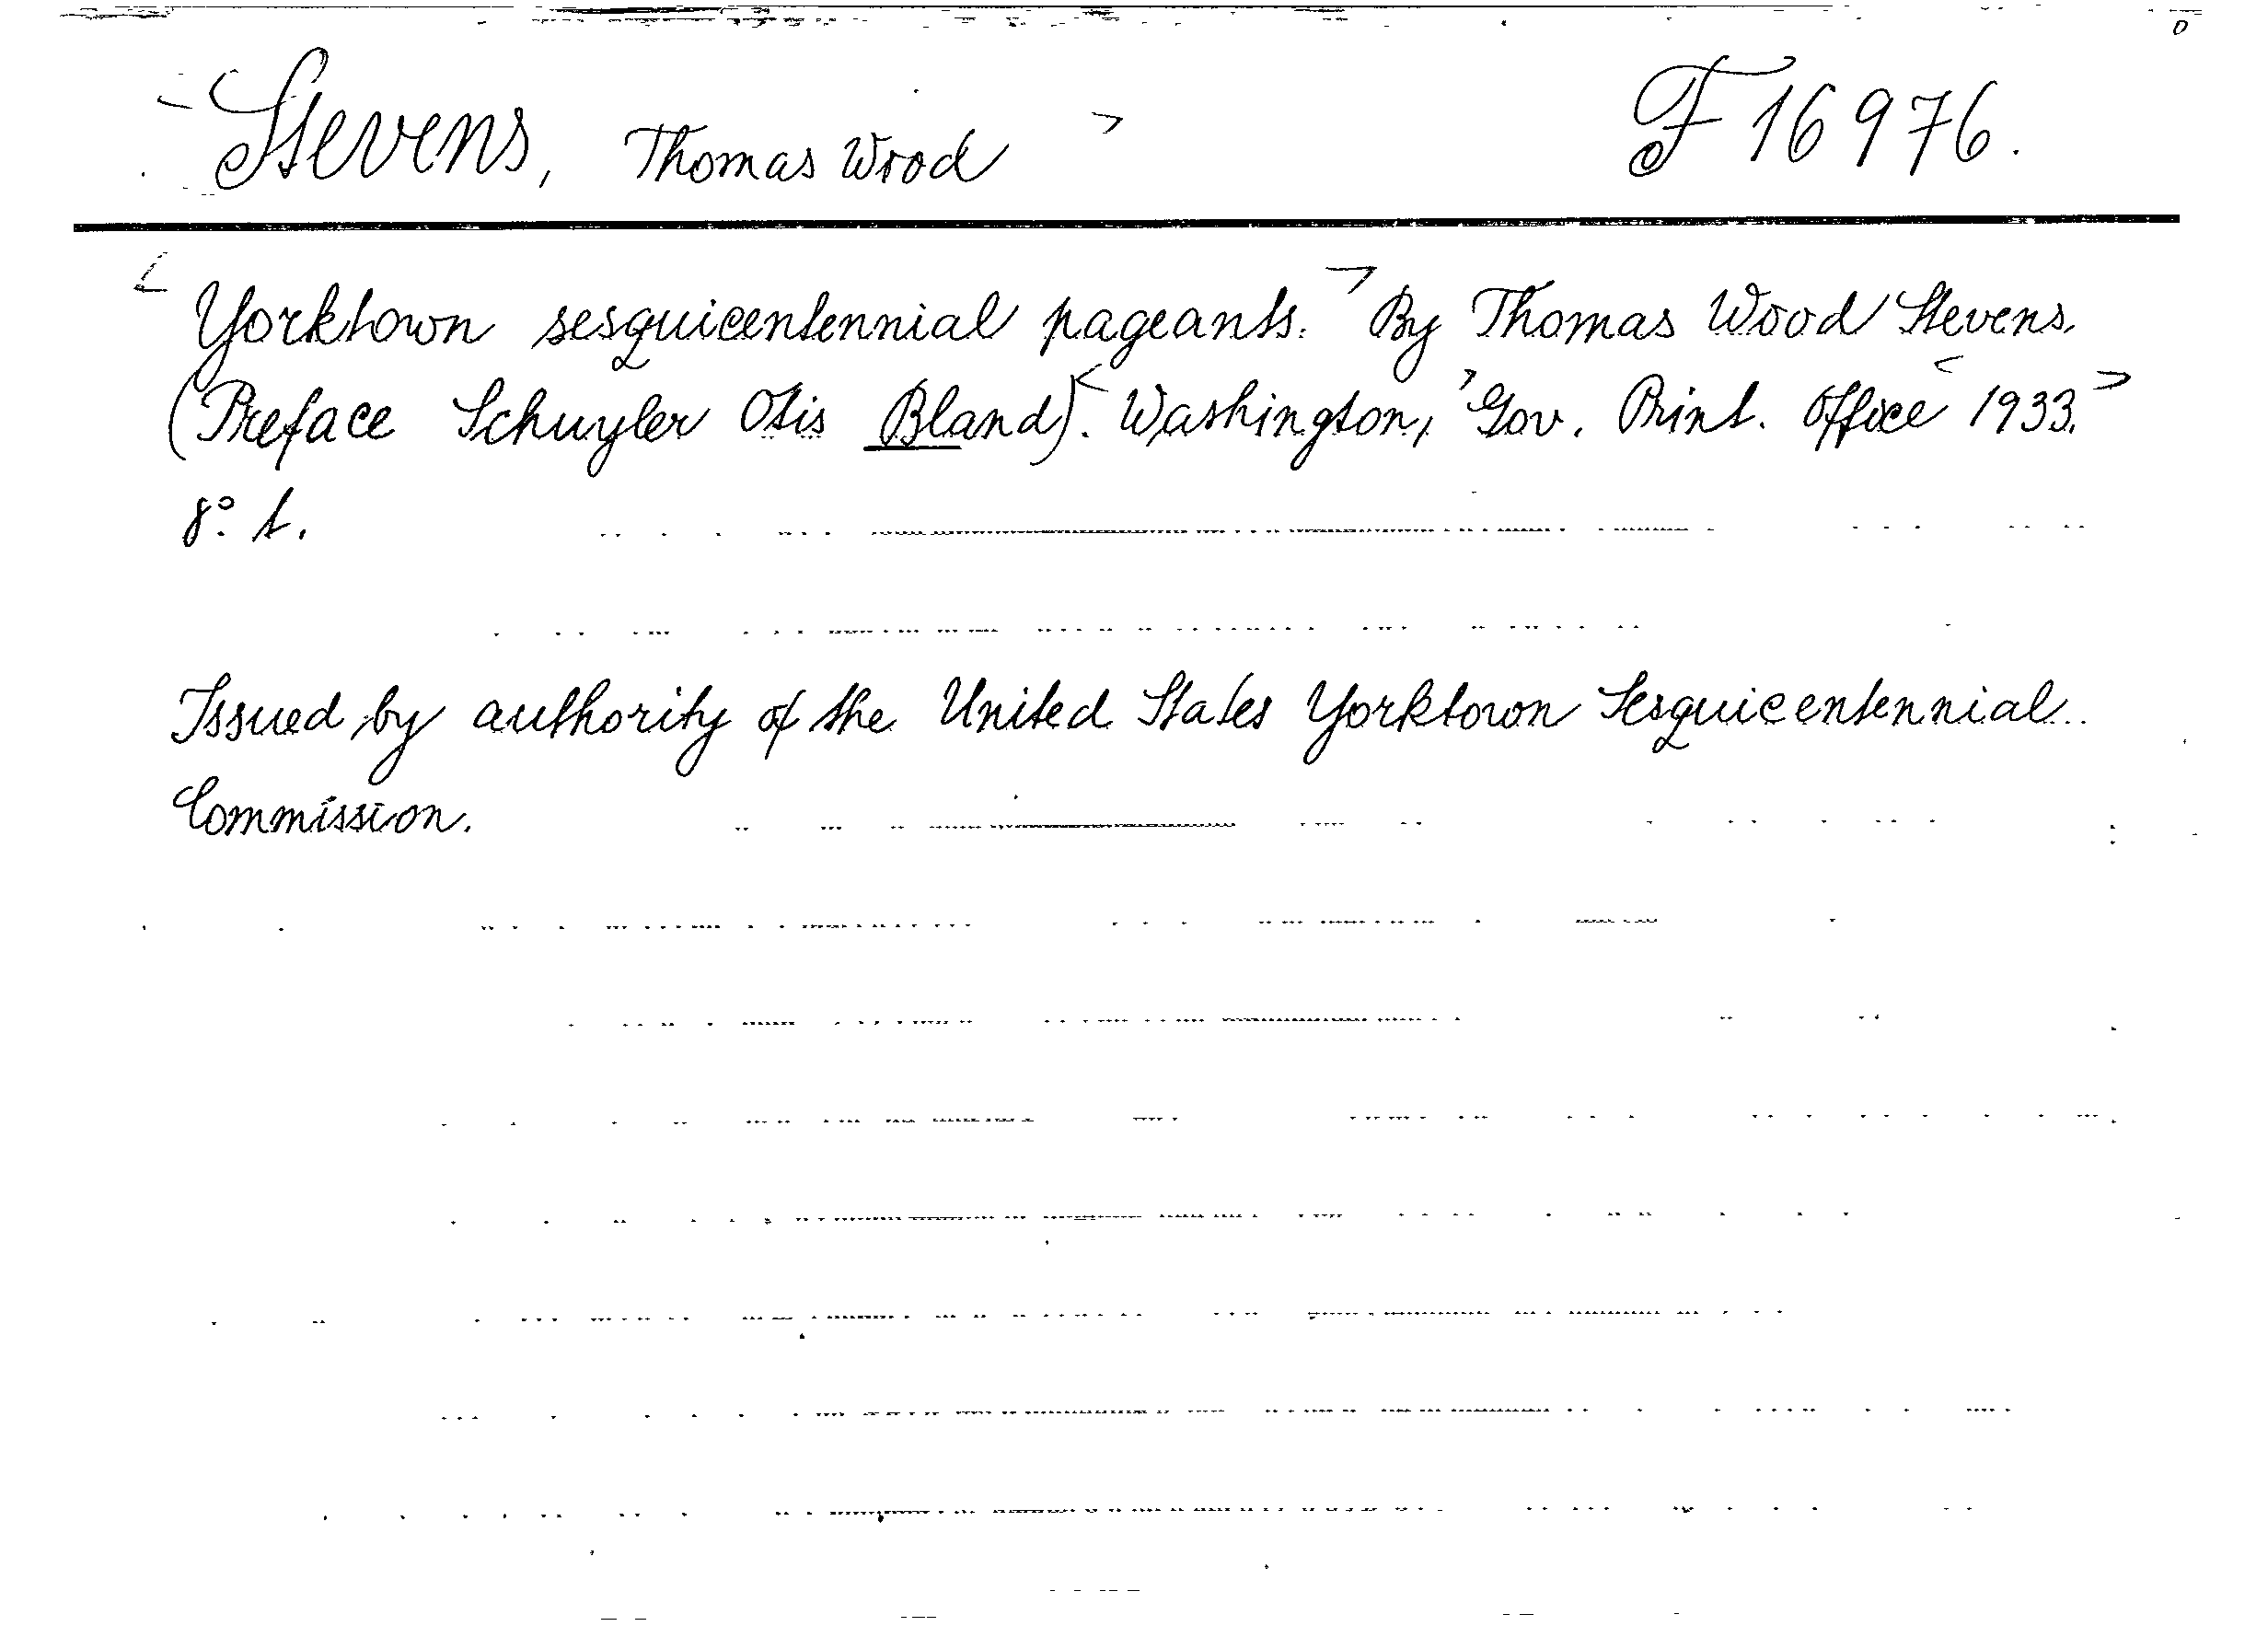 Stevens, Thomas Wood F 16976.
Yorktown sesquicentennial pageants. By Thomas Wood Stevens.
(Preface Schuyler Otis Bland). Washington, Gov. Print. Office 1933.
8° t.
Issued by authority of the United States Yorktown Sesquicentennial
Commission.